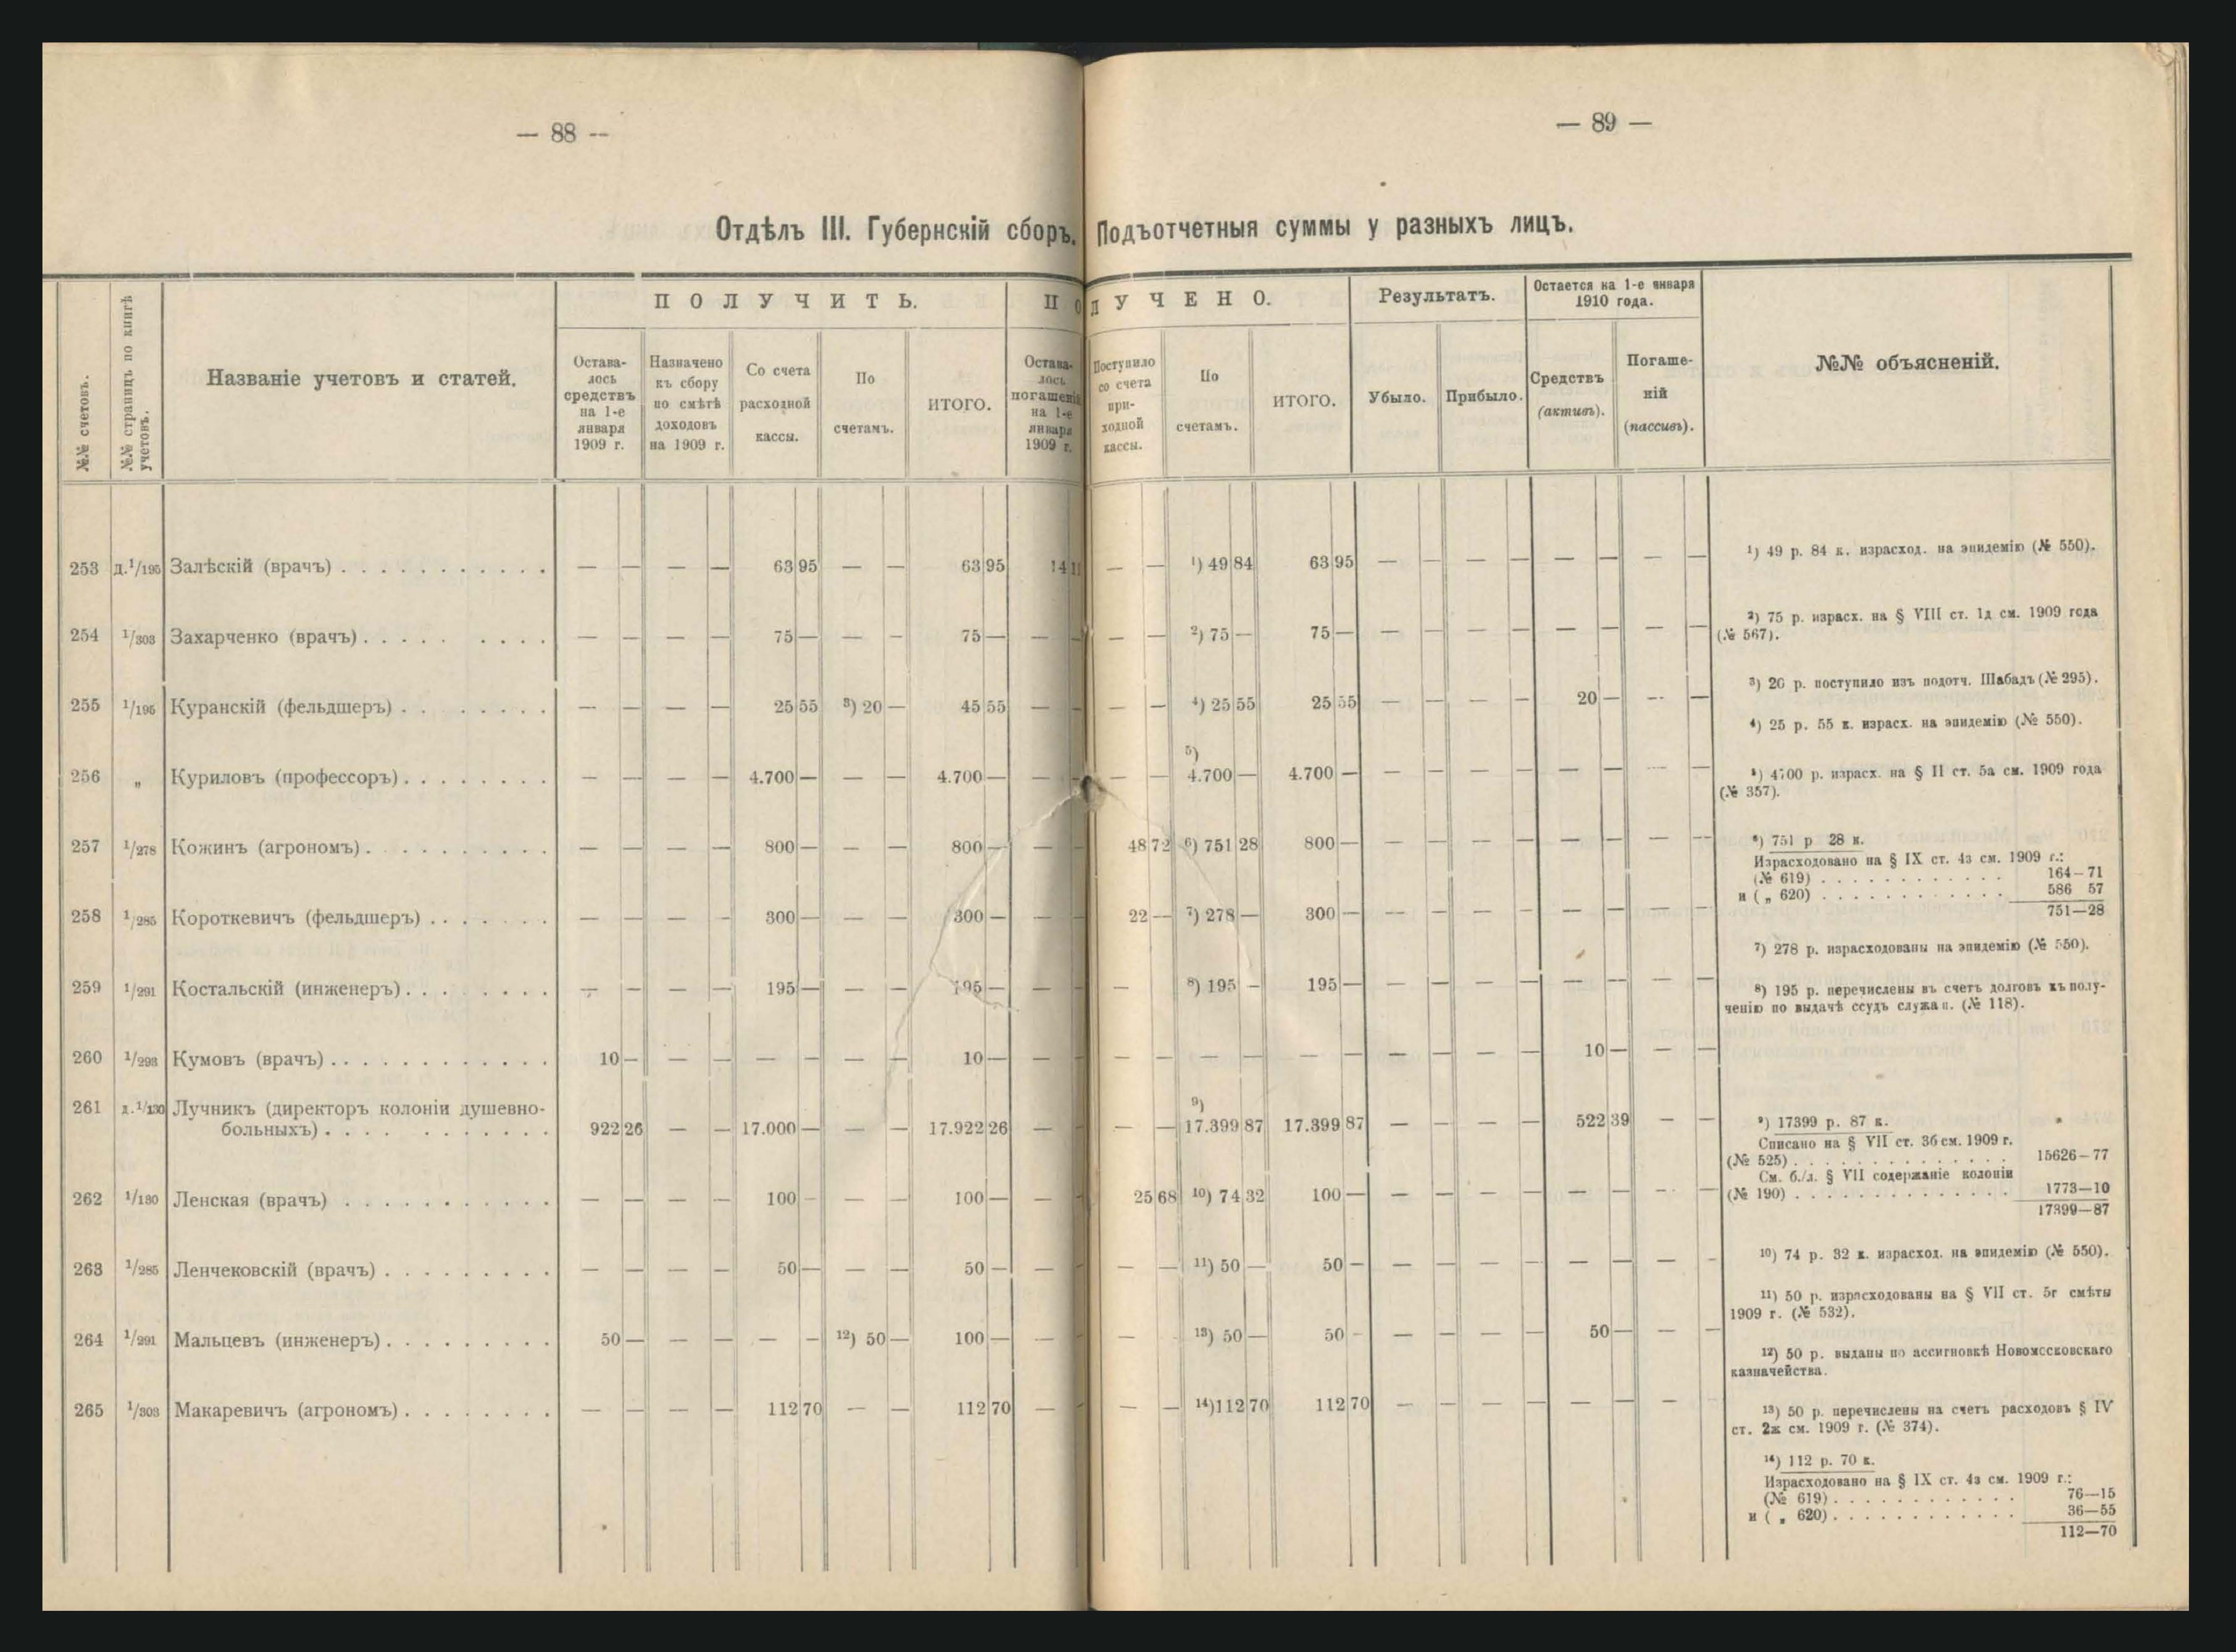 — 88 —
— 89 —
Отдѣлъ III. Губернскій сборъ. Подъотчетныя суммы у разныхъ лицъ.
№№ счетовъ.
№№ страницъ по книгѣ учетовъ.
Названіе учетовъ и статей.
ПОЛУЧИТЬ.
Остава-
лось
средствъ
на 1-е
января
1909 г.
Назначено
къ сбору
по смѣтѣ
доходовъ
на 1909 г.
Со счета
расходной
кассы.
По
счетамъ.
ИТОГО.
ПОЛУЧЕНО.
Остава-
лось
погашеній
на 1-е
января
1909 г.
Поступило
со счета
при-
ходной
кассы.
По
счетамъ.
ИТОГО.
Результатъ.
Убыло.
Прибыло.
Остается на 1-е января
1910 года.
Средствъ
(активъ).
Погаше-
ній
(пассивъ).
№№ объясненій.
253 д.1/195 Залѣскій (врачъ) . . . . . . . . . . . — — — — 63 95 — — 63 95 14 11 — — ¹) 49 84 63 95 — — — — — — — —
254 1/303 Захарченко (врачъ) . . . . . . . . . — — — — 75 — — — 75 — — — — — ²) 75 — 75 — — — — — — — — —
255 1/195 Куранскій (фельдшеръ) . . . . . . . — — — — 25 55 ³) 20 — 45 55 — — — — ⁴) 25 55 25 55 — — — — 20 — — —
256 „ Куриловъ (профессоръ) . . . . . . . . — — — — 4.700 — — — 4.700 — — — — — ⁵) 4.700 — 4.700 — — — — — — — — —
257 1/278 Кожинъ (агрономъ) . . . . . . . . . . — — — — 800 — — — 800 — — — 48 72 ⁶) 751 28 800 — — — — — — — — —
258 1/285 Короткевичъ (фельдшеръ) . . . . . . — — — — 300 — — — 300 — — — 22 — ⁷) 278 — 300 — — — — — — — — —
259 1/291 Костальскій (инженеръ) . . . . . . . — — — — 195 — — — 195 — — — — ⁸) 195 — 195 — — — — — — — — —
260 1/293 Кумовъ (врачъ) . . . . . . . . . . . . 10 — — — — — — — 10 — — — — — — — — — — — — — 10 — — —
261 д.1/130 Лучникъ (директоръ колоніи душевно-
больныхъ) . . . . . . . . . . . 922 26 — — 17.000 — — — 17.922 26 — — — — ⁹) 17.399 87 17.399 87 — — — — 522 39 — —
262 1/130 Ленская (врачъ) . . . . . . . . . . . — — — — 100 — — — 100 — — — 25 68 ¹⁰) 74 32 100 — — — — — — — — —
263 1/285 Ленчековскій (врачъ) . . . . . . . . . — — — — 50 — — — 50 — — — — — ¹¹) 50 — 50 — — — — — — — — —
264 1/291 Мальцевъ (инженеръ) . . . . . . . . . 50 — — — — — ¹²) 50 — 100 — — — — ¹³) 50 — 50 — — — — — 50 — — —
265 1/303 Макаревичъ (агрономъ) . . . . . . . . — — — — 112 70 — — 112 70 — — — — ¹⁴) 112 70 112 70 — — — — — — — —
¹) 49 р. 84 к. израсход. на эпидемію (№ 550).
²) 75 р. израсх. на § VIII ст. 1д см. 1909 года
(№ 567).
³) 20 р. поступило изъ подотч. Шабадъ (№ 295).
⁴) 25 р. 55 к. израсх. на эпидемію (№ 550).
⁵) 4700 р. израсх. на § II ст. 5а см. 1909 года
(№ 357).
⁶) 751 р 28 к.
Израсходовано на § IX ст. 4з см. 1909 г.:
(№ 619) . . . . . . . . . . . . 164—71
и ( „ 620) . . . . . . . . . . . . 586 57
751—28
⁷) 278 р. израсходованы на эпидемію (№ 550).
⁸) 195 р. перечислены въ счетъ долговъ къ полу-
ченію по выдачѣ ссудъ служащ. (№ 118).
⁹) 17399 р. 87 к.
Списано на § VII ст. 3б см. 1909 г.
(№ 525) . . . . . . . . . . . . . . 15626—77
См. б./л. § VII содержаніе колоніи
(№ 190) . . . . . . . . . . . . . . 1773—10
17399—87
¹⁰) 74 р. 32 к. израсход. на эпидемію (№ 550).
¹¹) 50 р. израсходованы на § VII ст. 5г смѣты
1909 г. (№ 532).
¹²) 50 р. выданы по ассигновкѣ Новомосковскаго
казначейства.
¹³) 50 р. перечислены на счетъ расходовъ § IV
ст. 2ж см. 1909 г. (№ 374).
¹⁴) 112 р. 70 к.
Израсходовано на § IX ст. 4з см. 1909 г.:
(№ 619) . . . . . . . . . . . . 76—15
и ( „ 620) . . . . . . . . . . . . 36—55
112—70